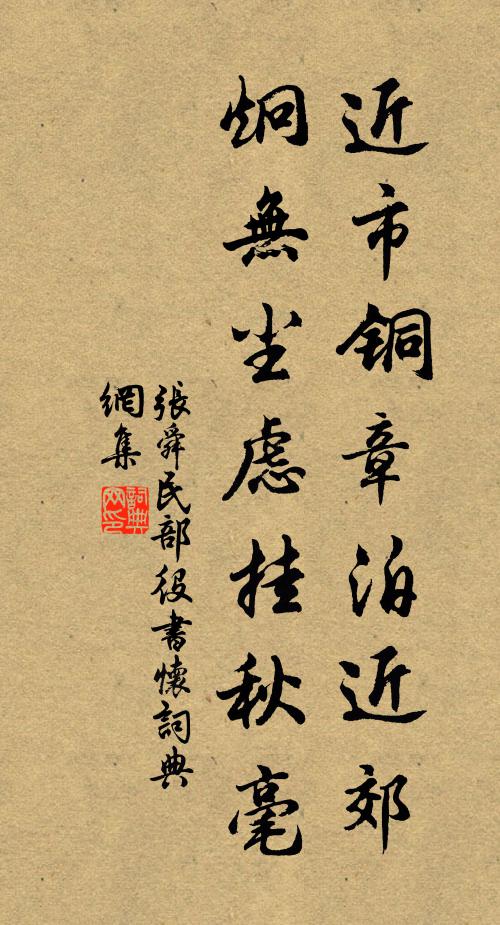 近市铜章泊近郊
炯無尘慮挂秋毫
張舜民部役書懷詞典
網集
詞典
网印